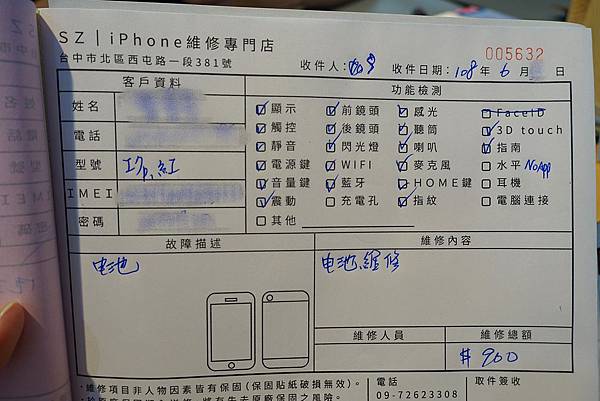 SZ | iPhone維修專門店
005632
台中市北區西屯路一段381號
收件人:
收件日期: 108 年 6 月 日
客戶資料
功能檢測
姓名
電話
型號
IMEI
密碼
顯示 前鏡頭 感光 FaceID
觸控 後鏡頭 聽筒 3D touch
靜音 閃光燈 喇叭 指南
電源鍵 WIFI 麥克風 水平 No App
音量鍵 藍牙 HOME鍵 耳機
震動 充電孔 指紋 電腦連接
其他
故障描述
維修內容
电池
电池維修
維修人員
維修總額
$ 900
・維修項目非人物因素皆有保固(保固貼紙破損無效)。
電話
09-72623308
取件簽收